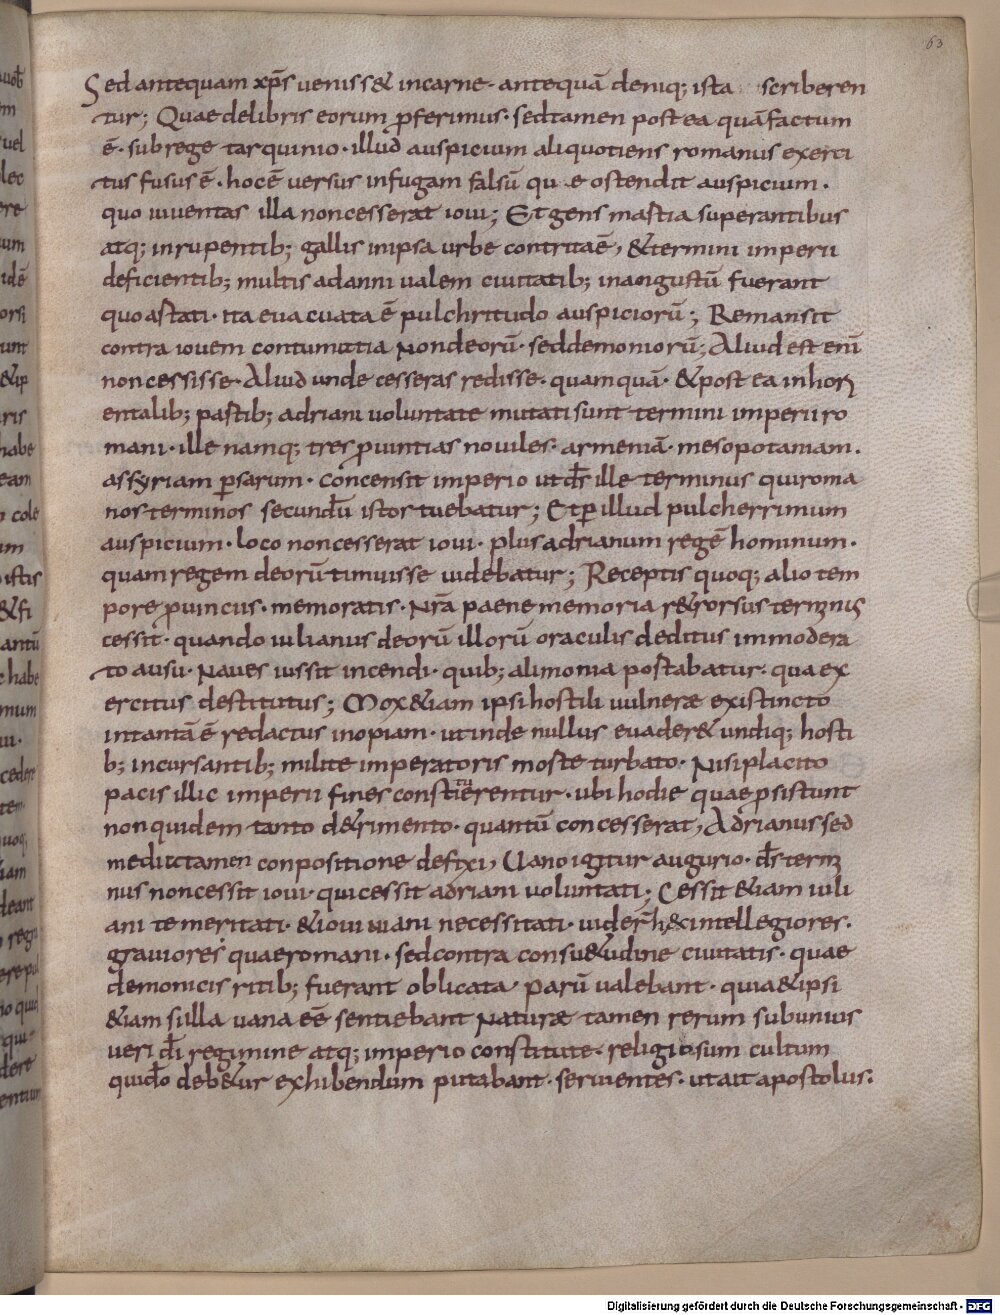 63
Sed antequam xp̄s uenisset incarne · antequā deniq; ista scriberen
tur; Quae delibris eorum p̄ferimus · sedtamen postea quāfactum
ē · subrege tarquinio · illud auspicium aliquotiens romanus exerci
tus fusus ē · hocē uersus infugam falsū qu e ostendit auspicium ·
quo iuuentas illa noncesserat ioui; Et gens mastia superantibus
atq; inrupentib; gallis inipsa urbe contritaē, & termini imperii
deficientib; multis adanni ualem ciuitatib; inangustū fuerant
quoastati · ita euacuata ē pulchritudo auspiciorū; Remansit
contra iouem contumatia Nondeorū · seddemoniorū; Aliud est enī
noncessisse · Aliud unde cesseras redisse · quamquā · & post ea inhori
entalib; pastib; adriani uoluntate mutati sunt termini imperii ro
mani · ille namq; tres p̄uintias nouiles · armeniā · mesopotamiam ·
assyriam p̄sarum · concensit imperio ut d̄s ille terminus quiroma
nos terminos secundū istos tuebatur; Et p̄ illud pulcherrimum
auspicium · loco noncesserat ioui · plus adrianum regē hominum ·
quam regem deorū timuisse uidebatur; Receptis quoq; alio tem
pore p̄uinciis · memoratis · Nr̄a paene memoria r&rorsus terminus
cessit · quando iulianus deorū illorū oraculis deditus immodera
to ausu · Naues iussit incendi · quib; alimonia postabatur · qua ex
ercitus destitutus; Mox &iam ipsi hostili uulnere existincto
intantā ē redactus inopiam · ut inde nullus euader& undiq; hosti
b; incursantib; milite imperatoris moste turbato · Nisi placito
pacis illic imperii fines constierentur · ubi hodie quae p̄sistunt
non quidem tanto d&rimento · quantū concesserat, Adrianus sed
mediictamen conpositione defixi, Uano igitur augurio · d̄s termi
nus noncessit ioui · qui cessit adriani uoluntati; Cessit &iam iuli
ani temeritati · & iouiniani necessitati · uider̄ h& intellegiores ·
grauiores quaeromani · sedcontra consu&udine ciuitatis · quae
demonicis ritib; fuerant oblicata · parū ualebant · quia & ipsi
&iam si illa uana eē sentiebant Naturae tamen rerum subunius
ueri d̄i regimine atq; imperio constitute · religiosum cultum
quid̄o deb&ur exhibendum putabant · seruientes · ut ait apostolus ·
Digitalisierung gefördert durch die Deutsche Forschungsgemeinschaft - DFG